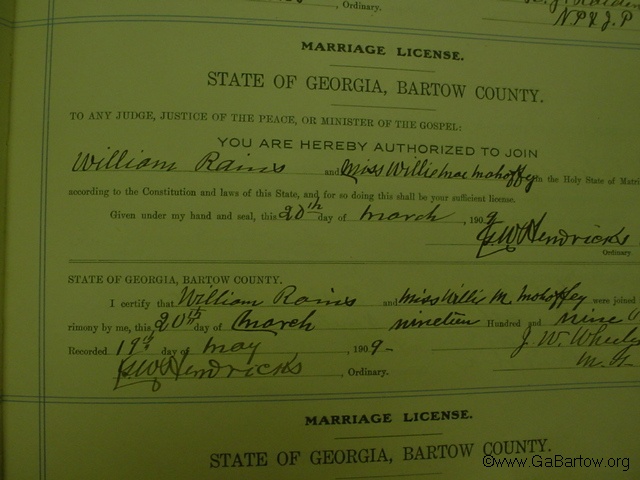 , Ordinary.
N.P. & J.P
MARRIAGE LICENSE.
STATE OF GEORGIA, BARTOW COUNTY.
TO ANY JUDGE, JUSTICE OF THE PEACE, OR MINISTER OF THE GOSPEL:
YOU ARE HEREBY AUTHORIZED TO JOIN
William Rains and Miss Willie Mae Mohoffey in the Holy State of Matri
according to the Constitution and laws of this State, and for so doing this shall be your sufficient license.
Given under my hand and seal, this 20th day of March , 190 9
G.W. Hendricks
Ordinary
STATE OF GEORGIA, BARTOW COUNTY.
I certify that William Rains and Miss Willi M. Mohoffey were joined
rimony by me, this 20th day of March nineteen Hundred and nine
Recorded 19th day of May , 190 9- J. W. Wheely
G.W. Hendricks , Ordinary. M. G.
MARRIAGE LICENSE.
STATE OF GEORGIA, BARTOW COUNTY.
©www.GaBartow.org